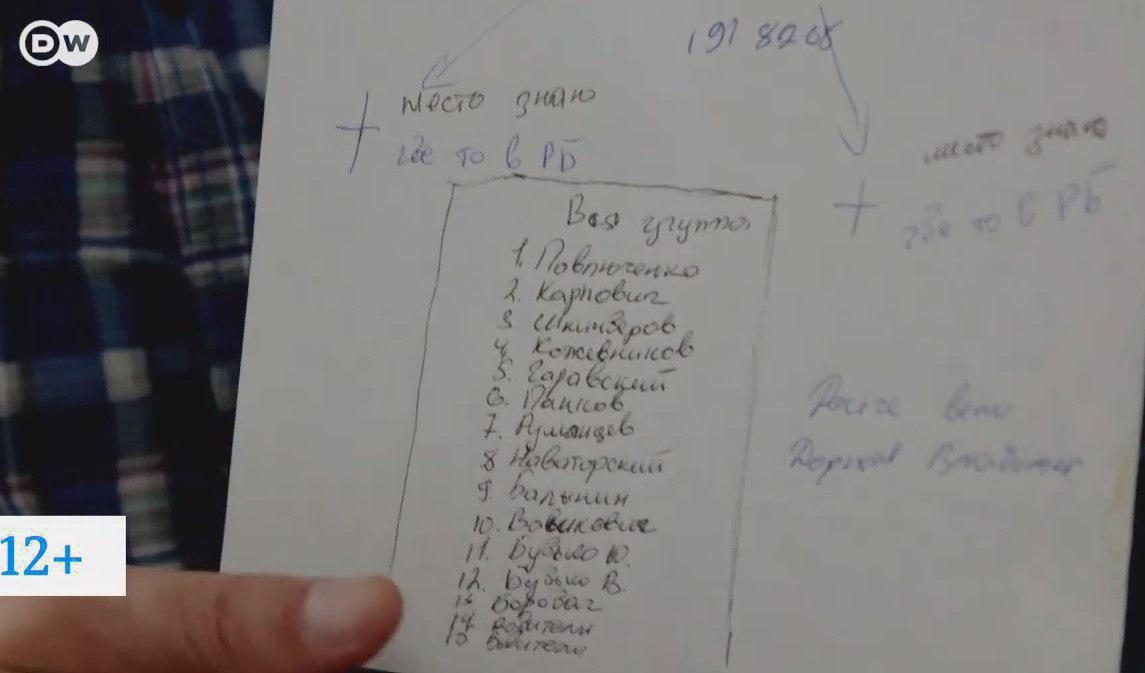 DW
191 8208
место знаю
где то в РБ
место знаю
где то в РБ
Вся группа
1. Павлюченко
2. Карпович
3 Шкинзеров
4 Кожевников
5. Гаравский
6. Панков
7. Румынцев
8 Новоторский
9. Балынин
10. Вовикович
11. Будько Ю.
12. Будько В.
13 Боровač
14 Водители
15 Водители
Владимир
12+